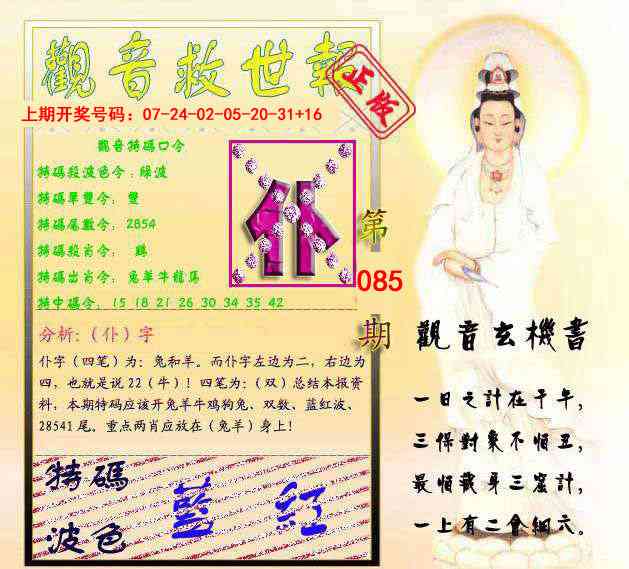 觀音救世報
正版
上期开奖号码：07-24-02-05-20-31+16
觀音特碼口令
特碼殺波色令：綠波
特碼單雙令：雙
特碼尾數令：2854
特碼殺肖令：鷄
特碼出肖令：兔羊牛龍馬
特中碼令：15 18 21 26 30 34 35 42
仆
第
085
期
分析：（仆）字
仆字（四笔）为：兔和羊。而仆字左边为二，右边为
四，也就是说22（牛）！四笔为：（双）总结本报资
料，本期特码应该开兔羊牛鸡狗兔、双数、蓝红波、
28541尾。重点两肖应放在（兔羊）身上！
特碼
波色
藍 紅
觀音玄機書
一日之計在于午，
三保對象不順丑，
最順載身三窟計，
一上有二會細六。